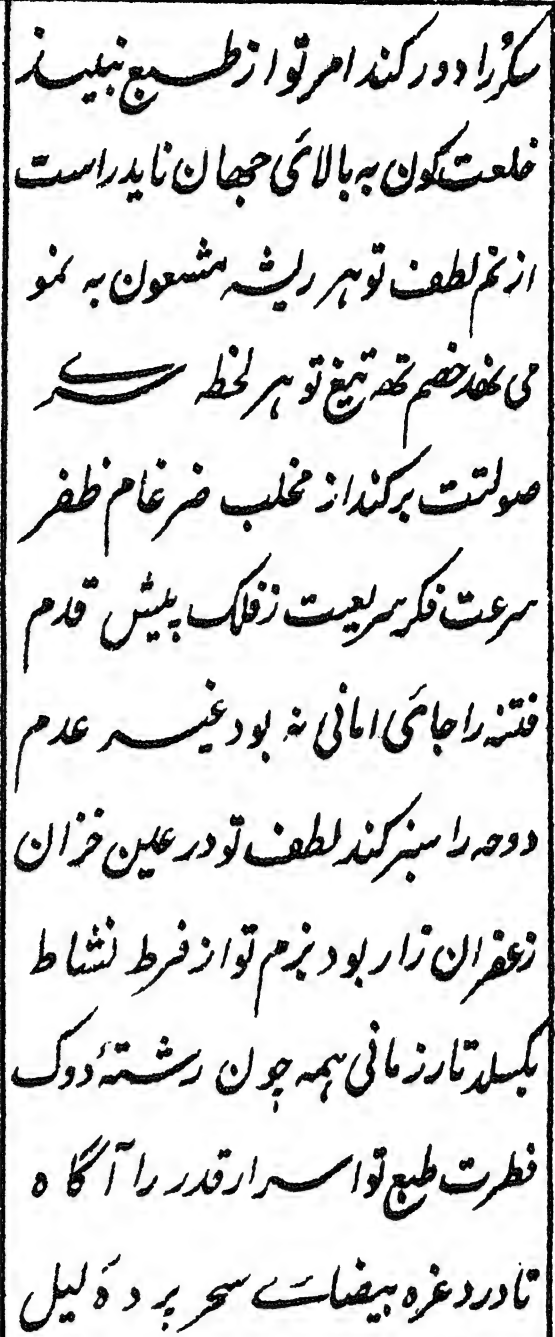 سکُر را دور کند امر تو از طبع نبیذ
خلعت کون به بالائ جهان ناید راست
از نم لطف تو هر ریشه مشعون به نمو
می نهد خصم ته تیغ تو هر لحظه سرے
صولتت برکند از مخلب ضرغام ظفر
سرعت فکر سریعت ز فلک پیش قدم
فتنه را جائ امانی نه بود غیر عدم
دوحه را سبز کند لطف تو در عین خزان
زعفران زار بود بزم تو از فرط نشاط
بگسلد تار زمانی همه چون رشتهٔ دوک
فطرت طبع تو اسرار قدر را آگاه
تا درد غره بیضائے سحر پردهٔ لیل